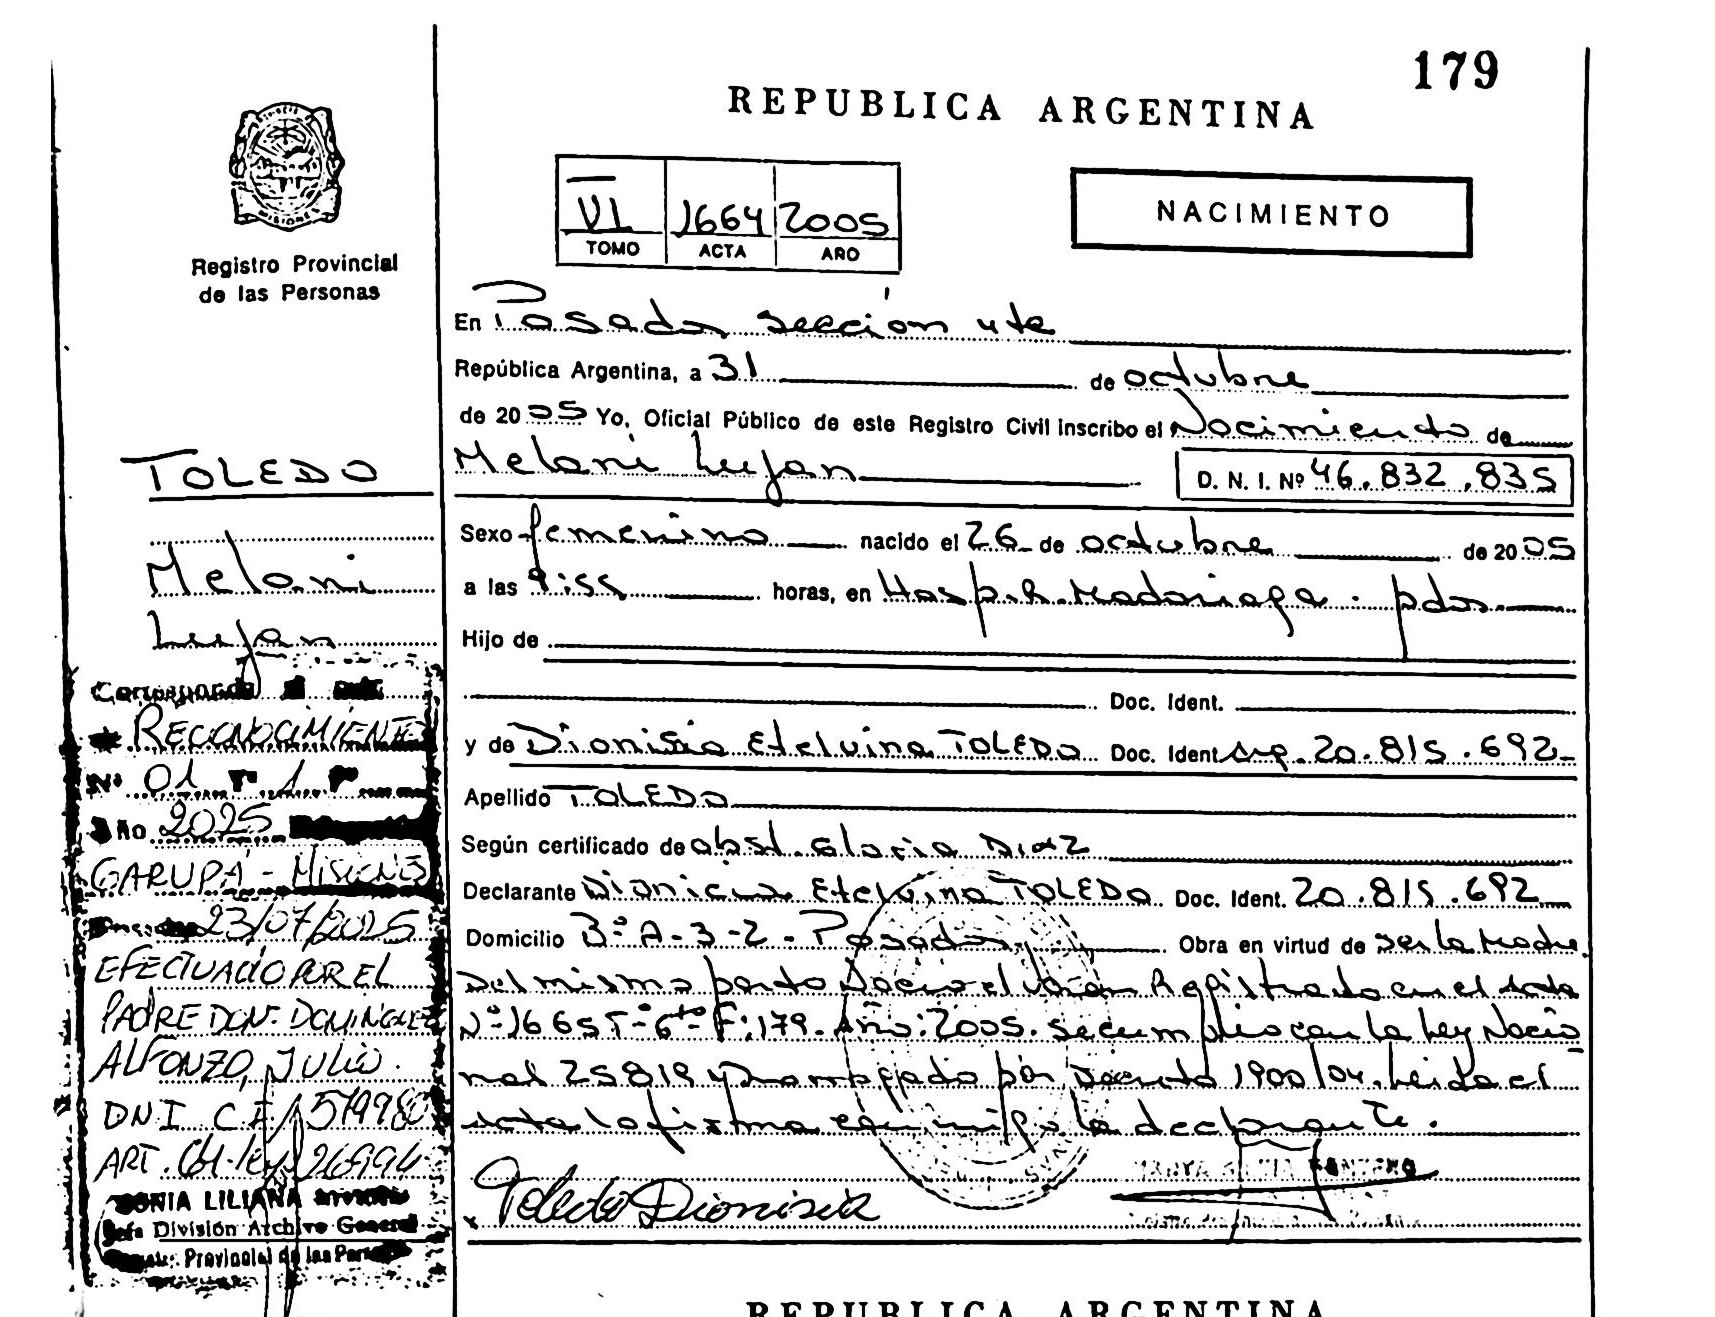 179
REPUBLICA ARGENTINA
VI 1664 2005
TOMO ACTA AÑO
NACIMIENTO
MISIONES
Registro Provincial
de las Personas
En Posadas sección 4ta
República Argentina, a 31 de octubre
de 2005 Yo, Oficial Público de este Registro Civil inscribo el Nacimiento de
Melani Lujan D. N. I. Nº 46.832.835
Sexo femenino nacido el 26 de octubre de 2005
a las 9:55 horas, en Hosp. R. Madariaga. pdas.
Hijo de
Doc. Ident.
y de Dionisia Etelvina TOLEDO Doc. Ident. Arg. 20.815.692-
Apellido TOLEDO
Según certificado de obst. Gloria Diaz
Declarante Dionicia Etelvina TOLEDO Doc. Ident. 20.815.692
Domicilio Bº A-3-2-Posadas Obra en virtud de ser la Madre.
Del mismo parto Nacio el Varon Registrado en el Acta
Nº 1665 Tº 6to Fº:179. Año:2005. se cumplio con la Ley Nacio
nal 25819 y Prorrogado por Decreto 1900/04. Leida el
acta la firma conmigo la declarante.
Toledo Dionisia
TOLEDO
Melani
Lujan
Corresponde
RECONOCIMIENTO
Nº 01 Tº 1 Fº
Año 2025
GARUPÁ - MISIONES
Posadas 23/07/2025
EFECTUADO POR EL
PADRE DON: DOMINGUEZ
ALFONZO, JULIO.
DNI C.I. 579980
ART. Ley 26994
SONIA LILIANA
Jefa División Archivo General
Provincial de las Personas
REPUBLICA ARGENTINA